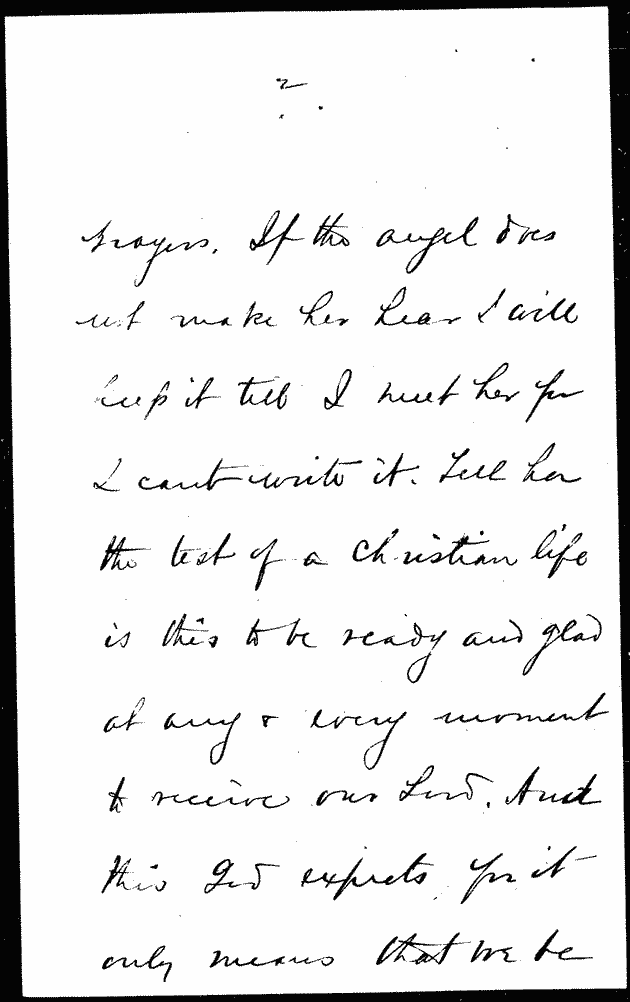 2
prayers. If the angel does
not make her hear I will
keep it till I meet her for
I cant write it. Tell her
the test of a Christian life
is this to be ready and glad
at any & every moment
to receive our Lord. And
this God expects, for it
only means that we be